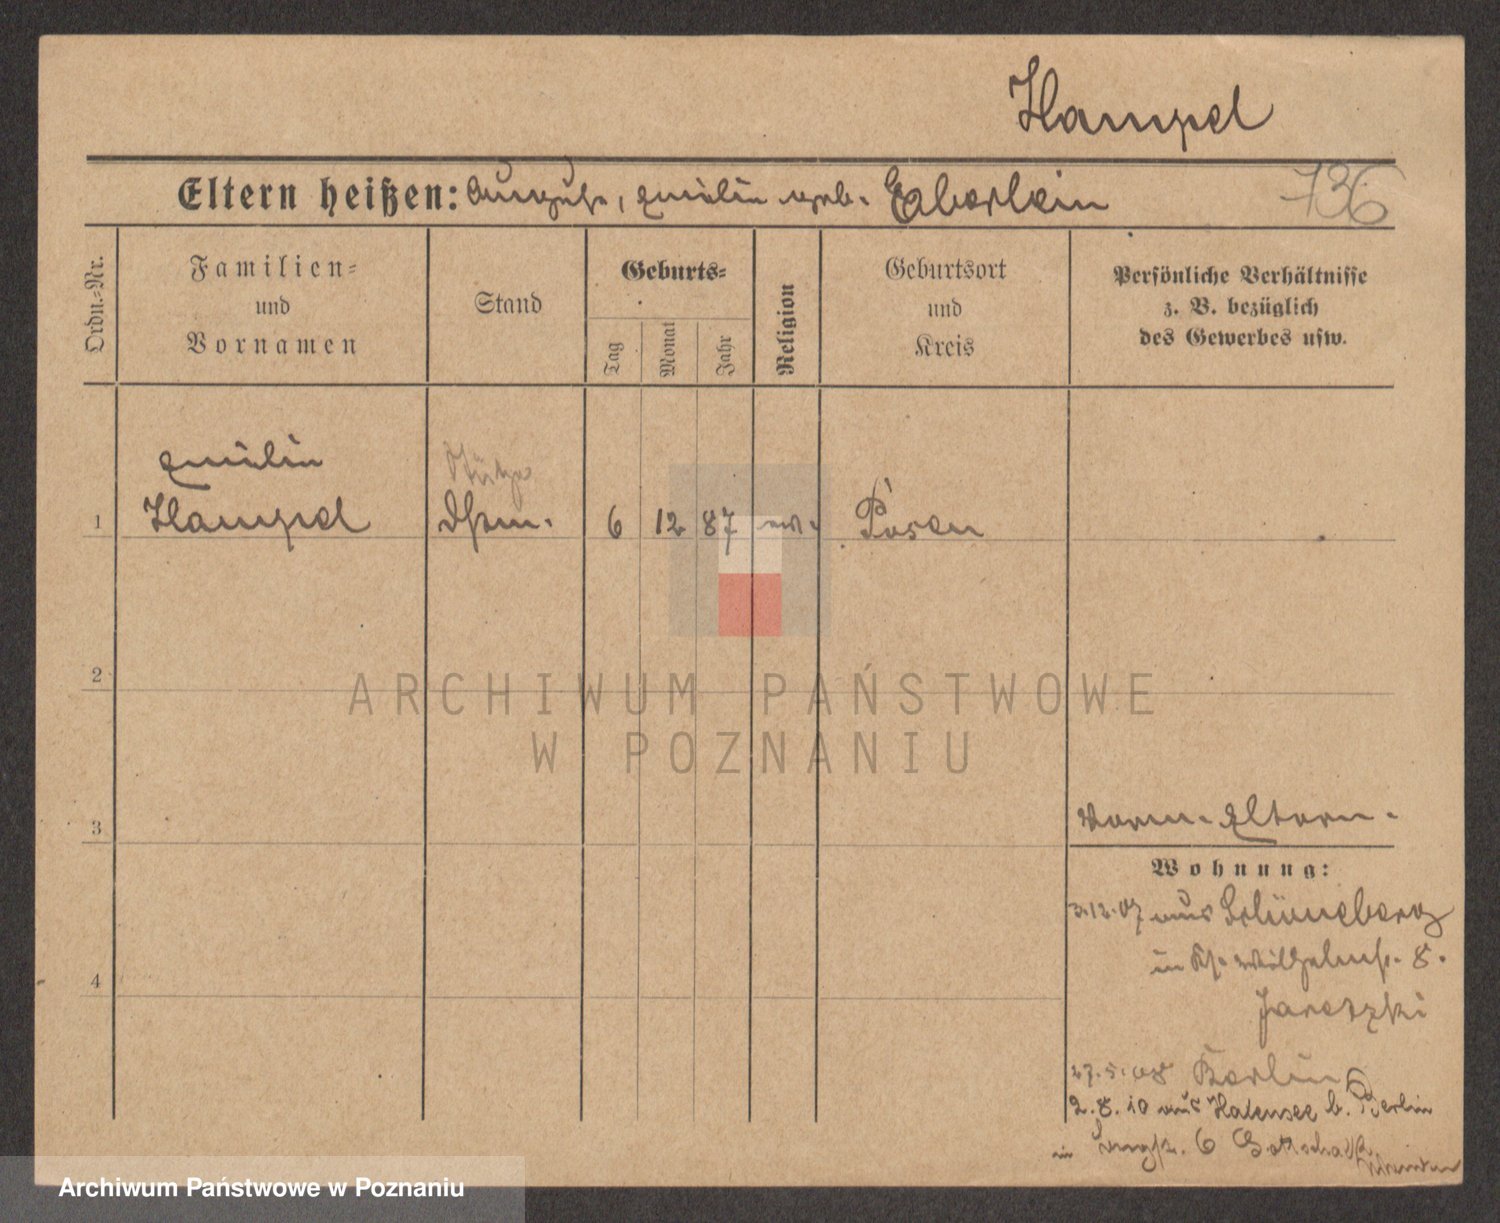 Hampel
Eltern heißen: August, Emilie geb. Eberlein
736
Ordn.-Nr.
Familien-
und
Vornamen
Stand
Geburts-
Tag
Monat
Jahr
Religion
Geburtsort
und
Kreis
Persönliche Verhältnisse
z. B. bezüglich
des Gewerbes usw.
Emilie
Stütze
1 Hampel 6 12 87 ev. Posen
2
ARCHIWUM PAŃSTWOWE
W POZNANIU
3
Eltern.
Wohnung:
3.12.07 aus Schöneberg
in Wilhelmst. 8.
Jaretzki
4
27.5.08 Berlin
2.8.10 aus Halensee b. Berlin
in 6 Gottschalk
Archiwum Państwowe w Poznaniu